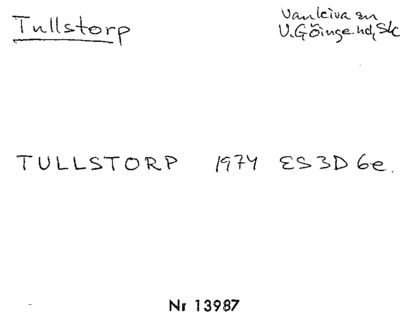 Tullstorp
Vankiva sn
V. Göinge hd, Sk
TULLSTORP 1974 ES3D6e
Nr 13987